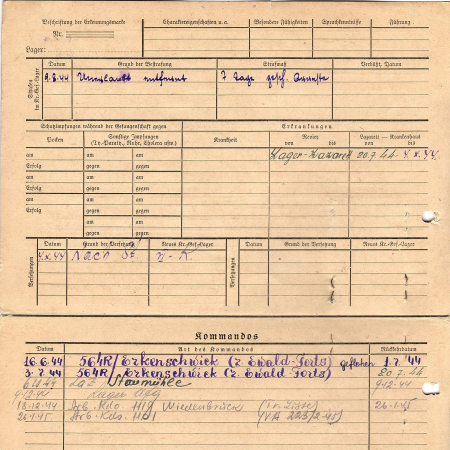 Beschriftung der Erkennungsmarke
Nr.
Lager:
Charaktereigenschaften u.a.
Besondere Fähigkeiten
Sprachkenntnisse
Führung
Strafen im Kr.-Gef.-Lager
Datum
Grund der Bestrafung
Strafmaß
Verbüßt, Datum
9.8.44 Unerlaubt entfernt 7 Tage gesch. Arrest
Schutzimpfungen während der Gefangenschaft gegen
Erkrankungen
Pocken
Sonstige Impfungen
(Ty.-Paraty., Ruhr, Cholera usw.)
Krankheit
Revier
von bis
Lazarett — Krankenhaus
von bis
am am am
Erfolg gegen gegen
am am am
Erfolg gegen gegen
am am am
Erfolg gegen gegen
am am am
Erfolg gegen gegen
Lager-Lazarett 20.7.44 4.X.44
Versetzungen
Datum
Grund der Versetzung
Neues Kr.-Gef.-Lager
Versetzungen
Datum
Grund der Versetzung
Neues Kr.-Gef.-Lager
4.X.44 Nach VI K
Kommandos
Datum
Art des Kommandos
Rückkehrdatum
16.6.44 564R/Erkenschwick (z. Ewald-Forts) geflohen 1.7.44
5.7.44 564R/Erkenschwick (z. Ewald-Forts) 20.7.44
Laz. Staumühle 9.12.44
9.12.44 Lager
18.12.44 Arb. Kdo. 1119 Wiedenbrück 26.1.45
26.1.45 Arb. Kdo.